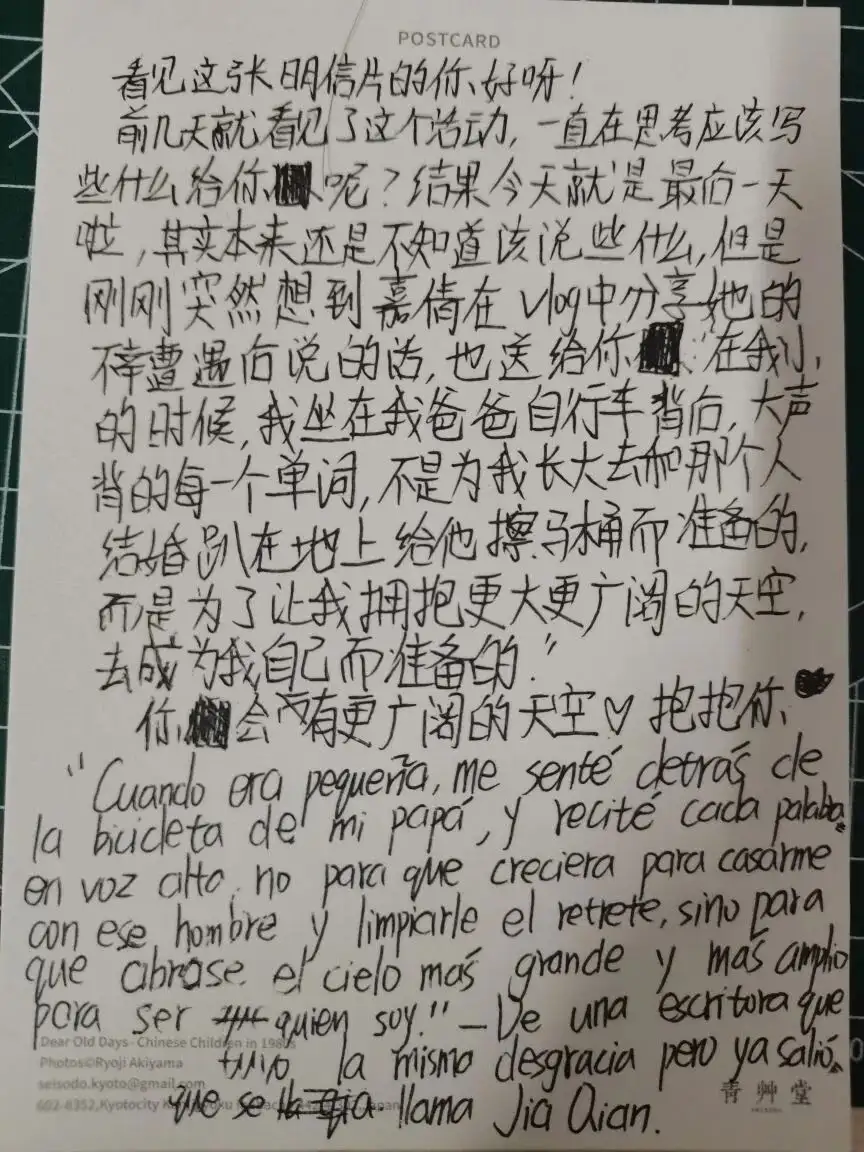 POSTCARD
看见这张明信片的你,好呀!
前几天就看见了这个活动,一直在思考应该写
些什么给你 呢?结果今天就是最后一天
啦,其实本来还是不知道该说些什么,但是
刚刚突然想到嘉倩在vlog中分享她的
不幸遭遇后说的话,也送给你 :"在我小
的时候,我坐在我爸爸自行车背后,大声
背的每一个单词,不是为我长大去和那个人
结婚趴在地上给他擦马桶而准备的,
而是为了让我拥抱更大更广阔的天空,
去成为我自己而准备的."
你 会有更广阔的天空♡ 抱抱你
"Cuando era pequeña, me senté detrás de
la bicicleta de mi papá, y recité cada palabra
en voz alta, no para que creciera para casarme
con ese hombre y limpiarle el retrete, sino para
que abrase el cielo más grande y más amplio
para ser quien soy." — De una escritora que
Dear Old Days - Chinese Children in 1980s
Photos©Ryoji Akiyama
tuvo la misma desgracia pero ya salió
seisodo.kyoto@gmail.com
que se llama Jia Qian.
602-8352,Kyotocity
青艸堂